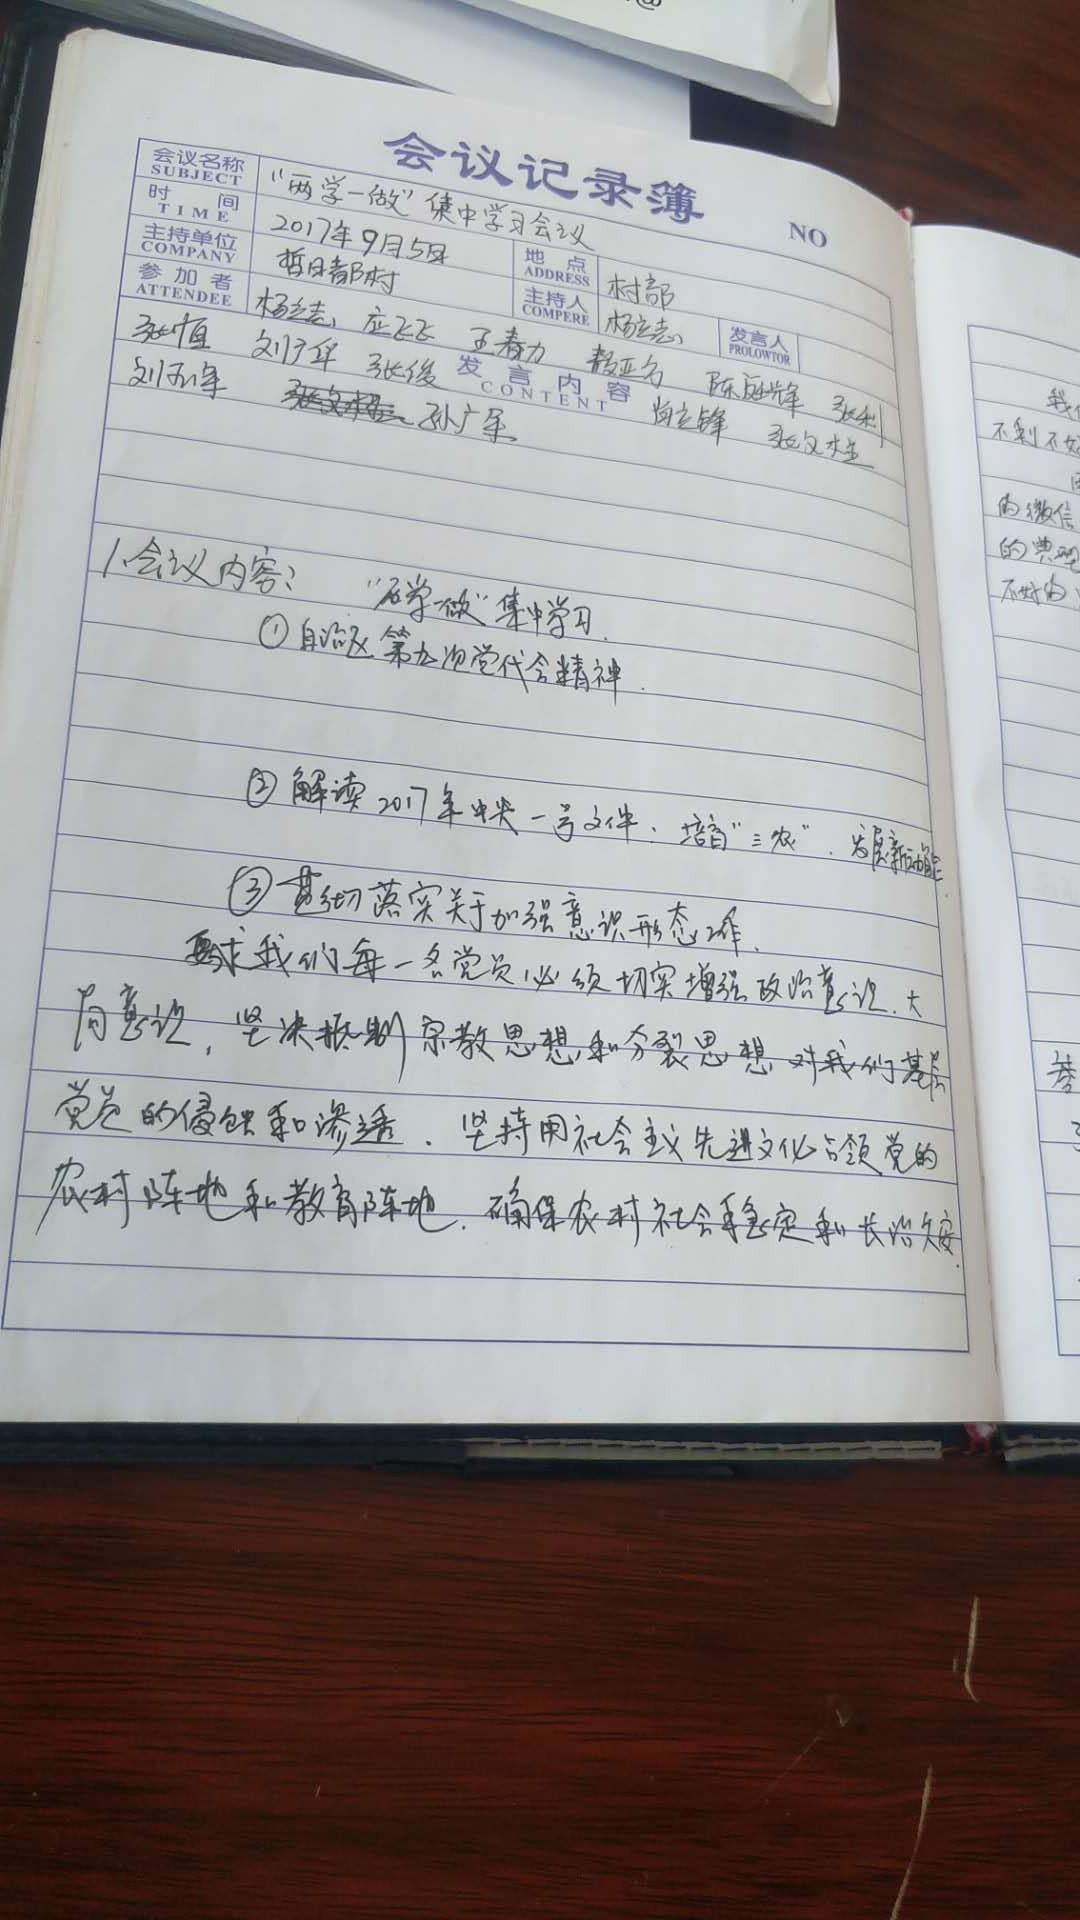 会议记录簿
NO
会议名称 SUBJECT “两学一做”集中学习会议
时间 TIME 2017年9月5日 地点 ADDRESS 村部
主持单位 COMPANY 哲日都村 主持人 COMPERE 杨立志 发言人 PROLOWTOR
参加者 ATTENDEE 杨立志 应飞飞 王春力 陈延辉 张利
张恒 张俊 发言内容 CONTENT 尚立锋 张文柱
刘玉军 孙广军
1.会议内容: “两学一做”集中学习.
①自治区第九次党代会精神.
②解读2017年中央一号文件,培育“三农”,发展新动能.
③贯彻落实关于加强意识形态工作,
要求我们每一名党员必须切实增强政治意识、大
局意识,坚决抵制宗教思想和分裂思想对我们基层
党员的侵蚀和渗透,坚持用社会主义先进文化占领党的
农村阵地和教育阵地,确保农村社会稳定和长治久安.
我们
不利不好
的微信
的典型
不好的